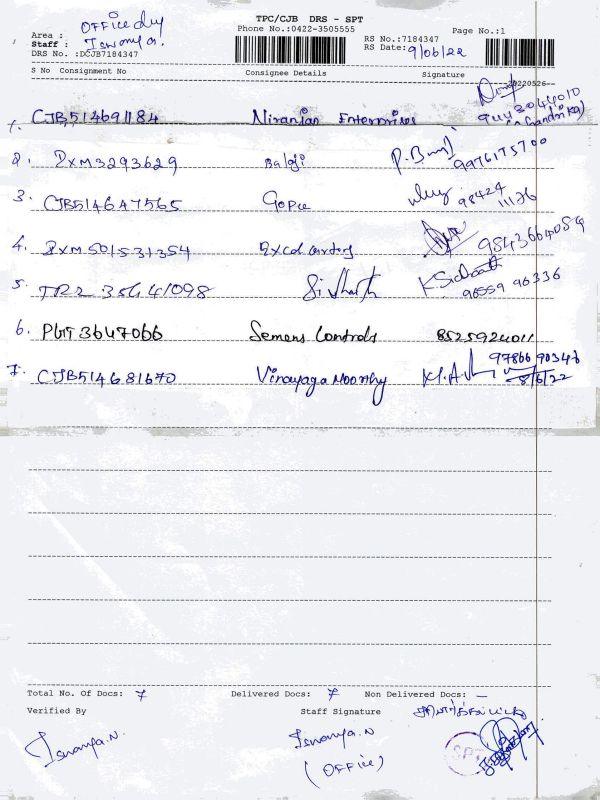 TPC/CJB DRS - SPT
Phone No.:0422-3505555
Page No.:1
Area : Office dly
Staff : Iswarya.
RS No.:7184347
RS Date: 9/06/22
DRS No. :DCJB7184347
S No Consignment No Consignee Details Signature
20220526
1. CJB514691184 Niranjan Enterprises 9443044010
2. IXM3293629 Balaji 9976175700
3. CJB514647565 Gopu 98424 11126
4. IXM501531354 Excel 9843664059
5. TRZ 35641098 Sidharth K Sidharth 96559 96336
6. PWT3647066 Semens Controls 8525924011
7. CJB514681670 Vinayaga Moorthy 97866 90346
8/6/22
Total No. Of Docs: 7 Delivered Docs: 7 Non Delivered Docs: –
Verified By Staff Signature
Iswarya.N Iswarya.N
(OFFICE)
SPT